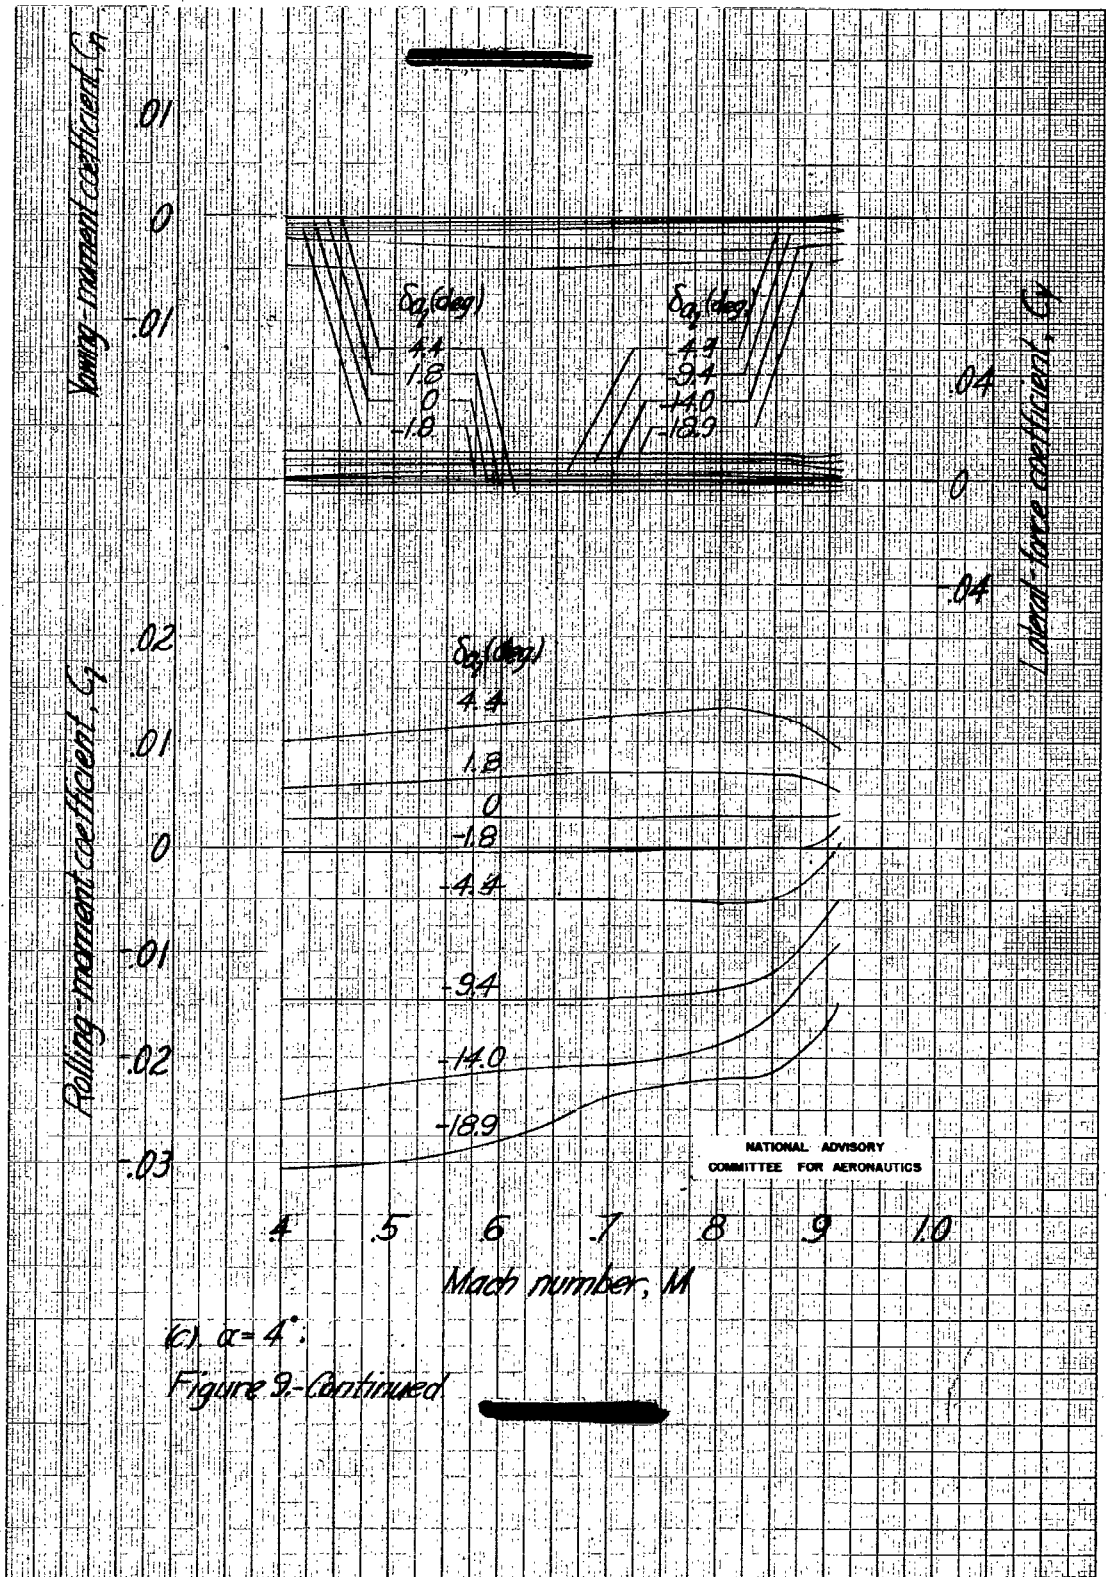 Yawing-moment coefficient, Cn
.01
0
-.01
δa₁(deg)
4.4
1.8
0
-1.8
δa₁(deg)
-4.4
-9.4
-14.0
-18.9
.04
0
-.04
Lateral-force coefficient, Cy
Rolling-moment coefficient, Cl
.02
.01
0
-.01
-.02
-.03
δa₁(deg)
4.4
1.8
0
-1.8
-4.4
-9.4
-14.0
-18.9
NATIONAL ADVISORY
COMMITTEE FOR AERONAUTICS
.4 .5 .6 .7 .8 .9 1.0
Mach number, M
(c) α = 4°.
Figure 9.-Continued